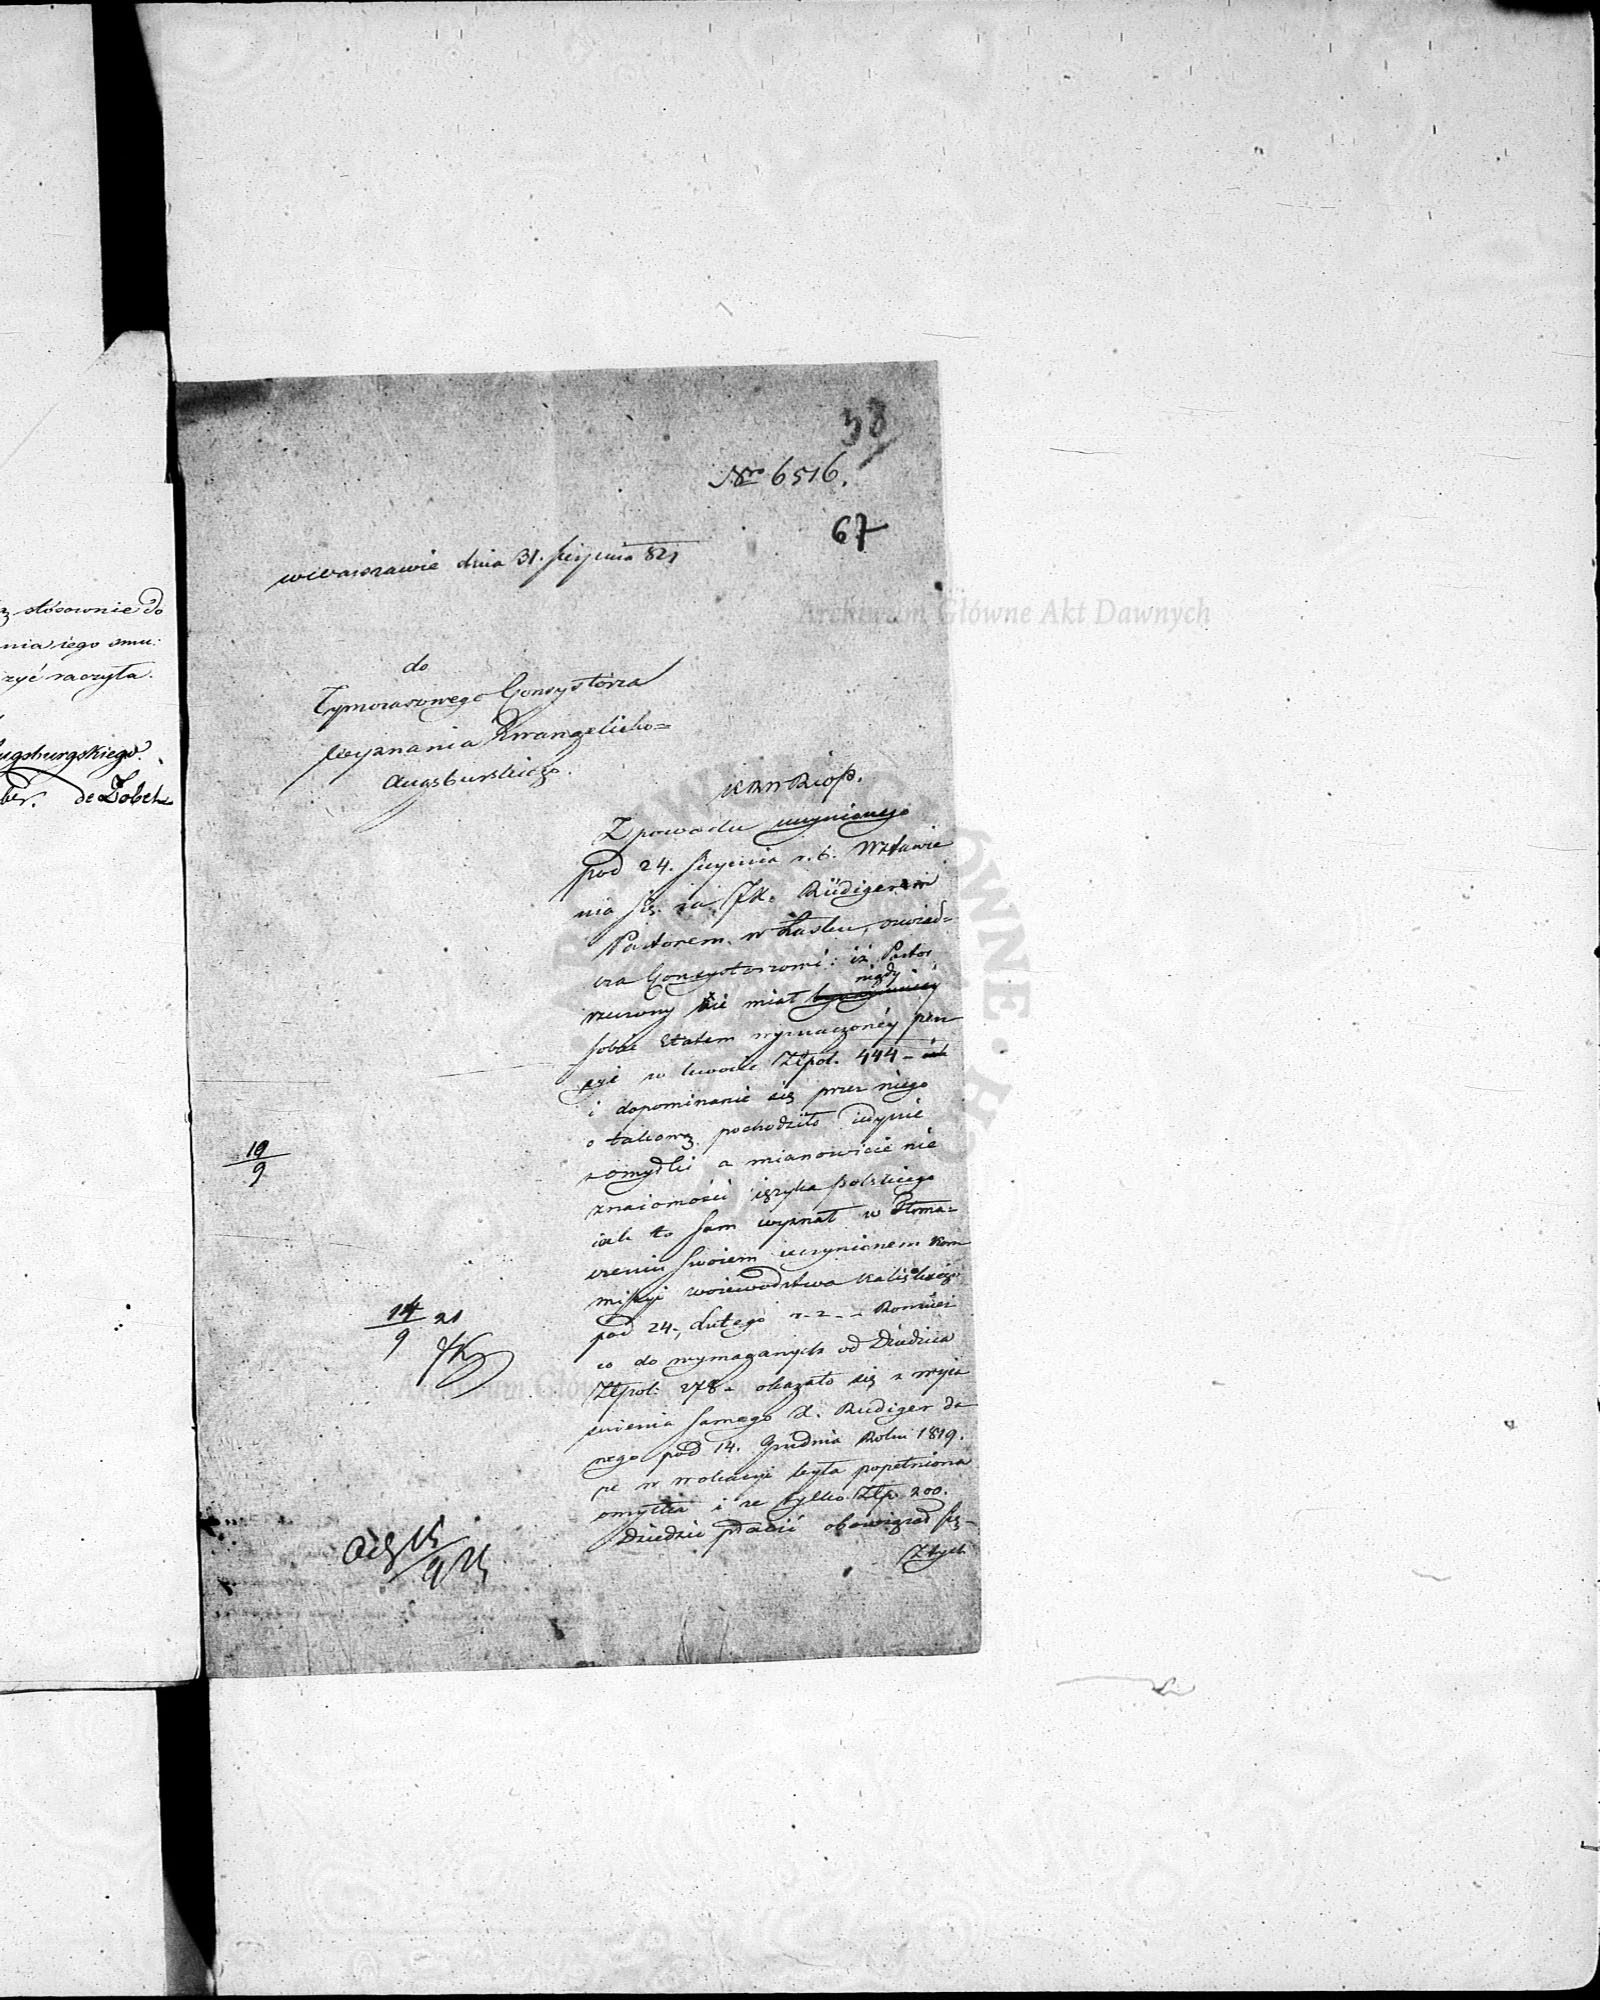 z stósownie do
nia iego omu:
zyć raczyła.
ugsburgskiego.
ber. de Zobel
38
Nro 6516.
67
w Warszawie dnia 31. sierpnia 821
do
Tymczasowego Consystorza
Wyznania Ewangelicko=
Augsburskiego.
KRW R i O p.
Z powodu uczynionego
pod 24. stycznia r. b. Wstawie
nia się za JX. Rüdigerem
Pastorem w Łasku, oświad=
cza Consystorzowi: iż Pastor
rzeczony nie miał nigdy
sobie Etatem wyznaczonéy pen
syi w kwocie Złpol. 444 –
i dopominanie się przez niego
o takową pochodziło iedynie
z omyłki a mianowicie nie
znaiomości ięzyka polskiego
iak to sam wyznał w tłoma=
czeniu swoiem uczynionem Kom
missyi woiewodztwa Kaliskiego
pod 24. lutego Rownież
co do wymaganych od Dziedzica
Złpol: 278 – okazało się z wyia
śnienia samego X. Rudiger da
nego pod 14. Grudnia Roku 1819.
że w wokacyi była popełniona
omyłka i że tylko Złp. 200.
Dziedzic płacić obowiązał się –
Z tych
19
9
14 21
9
Archiwum Główne Akt Dawnych
Archiwum Główne